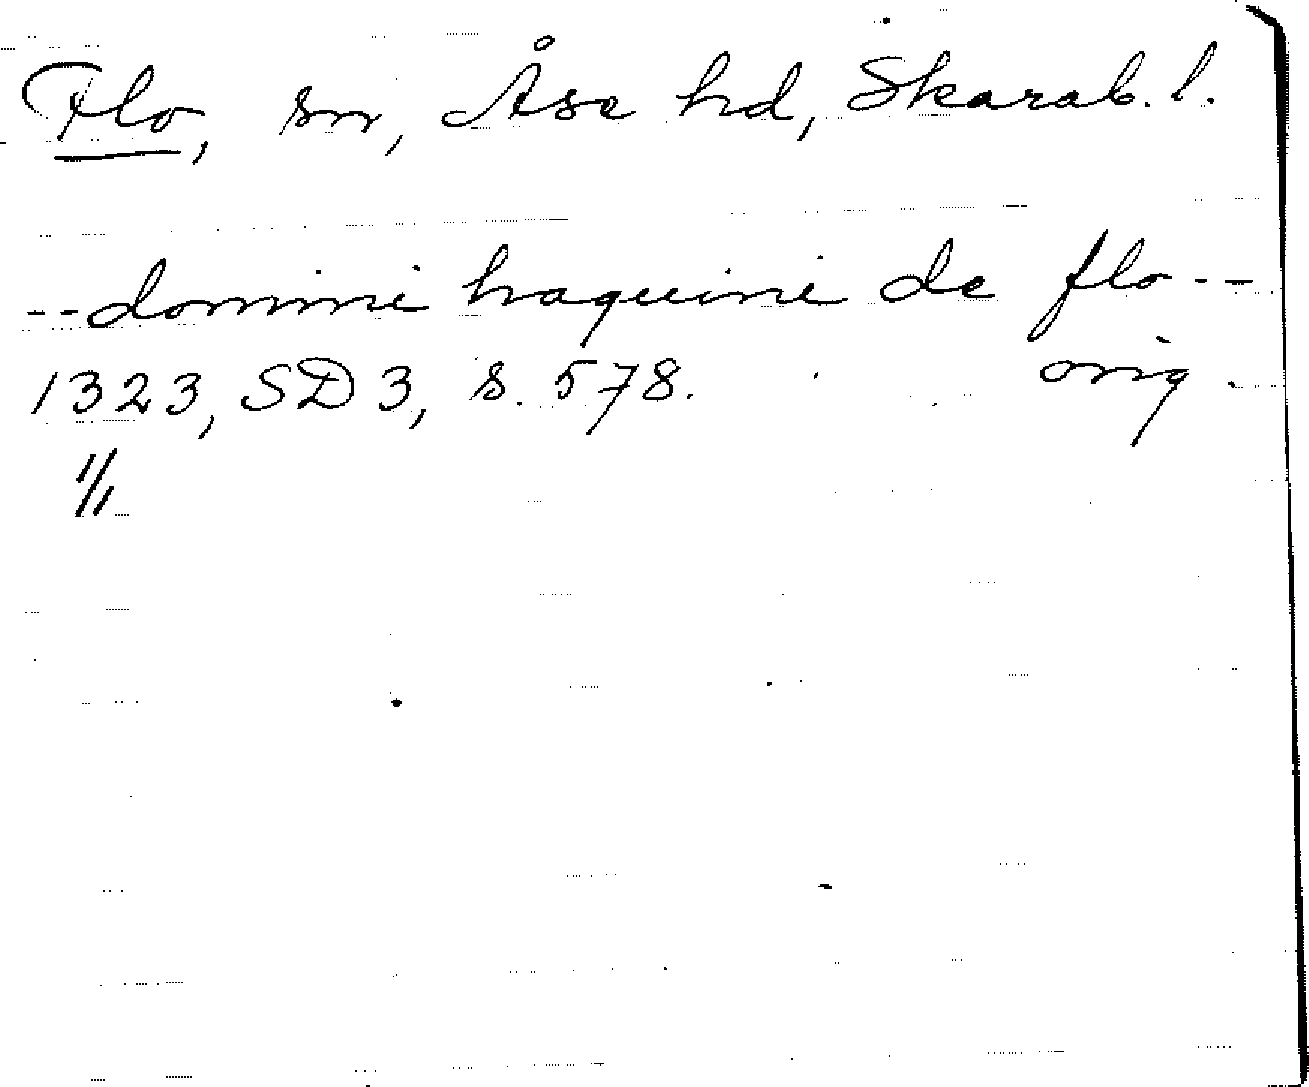 Flo, sn, Åse hd, Skarab. l.
--domini haquini de flo--
1323, SD 3, s. 578. orig.